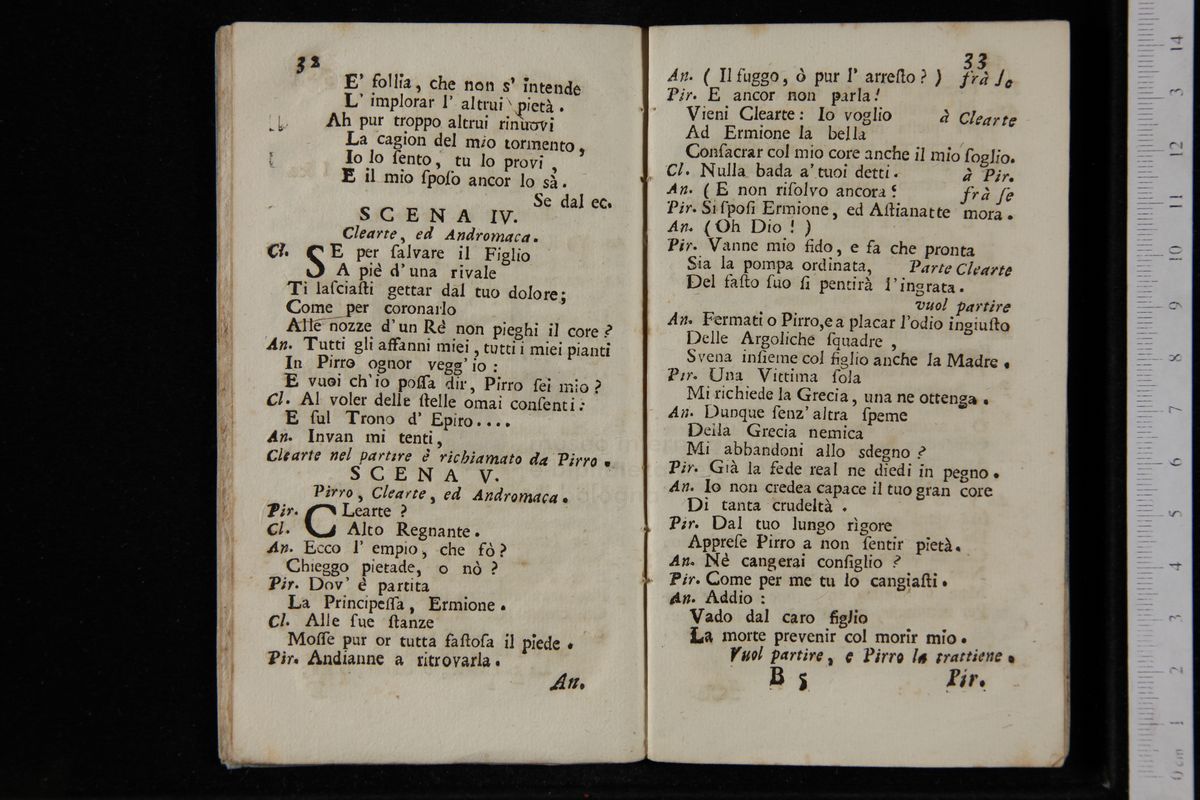 32
E' follia, che non s' intende
L' implorar l' altrui pietà.
Ah pur troppo altrui rinuovi
La cagion del mio tormento,
Io lo ſento, tu lo provi,
E il mio ſpoſo ancor lo sà.
Se dal ec.
SCENA IV.
Clearte, ed Andromaca.
Cl. SE per ſalvare il Figlio
A piè d' una rivale
Ti laſciaſti gettar dal tuo dolore;
Come per coronarlo
Alle nozze d' un Rè non pieghi il core?
An. Tutti gli affanni miei, tutti i miei pianti
In Pirro ognor vegg' io:
E vuoi ch'io poſſa dir, Pirro ſei mio?
Cl. Al voler delle ſtelle omai conſenti:
E ſul Trono d' Epiro....
An. Invan mi tenti,
Clearte nel partire è richiamato da Pirro.
SCENA V.
Pirro, Clearte, ed Andromaca.
Pir. CLearte?
Cl. Alto Regnante.
An. Ecco l' empio, che fò?
Chieggo pietade, o nò?
Pir. Dov' è partita
La Principeſſa, Ermione.
Cl. Alle ſue ſtanze
Moſſe pur or tutta faſtoſa il piede.
Pir. Andianne a ritrovarla.
An.
33
An. ( Il fuggo, ò pur l' arreſto? ) frà ſe
Pir. E ancor non parla!
Vieni Clearte: Io voglio à Clearte
Ad Ermione la bella
Conſacrar col mio core anche il mio ſoglio.
Cl. Nulla bada a' tuoi detti. à Pir.
An. ( E non riſolvo ancora? frà ſe
Pir. Si ſpoſi Ermione, ed Aſtianatte mora.
An. (Oh Dio! )
Pir. Vanne mio fido, e fa che pronta
Sia la pompa ordinata, Parte Clearte
Del faſto ſuo ſi pentirà l'ingrata.
vuol partire
An. Fermati o Pirro, e a placar l'odio ingiuſto
Delle Argoliche ſquadre,
Svena inſieme col figlio anche la Madre.
Pir. Una Vittima ſola
Mi richiede la Grecia, una ne ottenga.
An. Dunque ſenz' altra ſpeme
Della Grecia nemica
Mi abbandoni allo sdegno?
Pir. Già la fede real ne diedi in pegno.
An. Io non credea capace il tuo gran core
Di tanta crudeltà.
Pir. Dal tuo lungo rigore
Appreſe Pirro a non ſentir pietà.
An. Nè cangerai conſiglio?
Pir. Come per me tu lo cangiaſti.
An. Addio:
Vado dal caro figlio
La morte prevenir col morir mio.
Vuol partire, e Pirro la trattiene.
B 5
Pir.